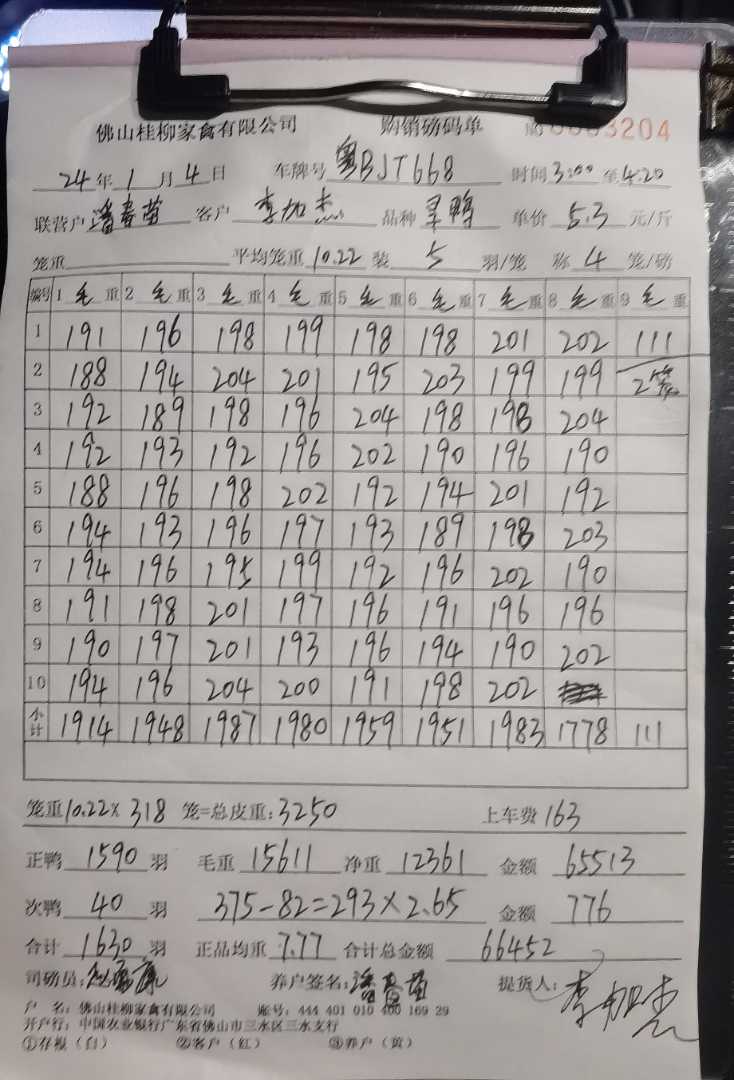 佛山桂柳家禽有限公司 购销磅码单 3204
24年1月4日 车牌号 粤BJT668 时间3:00至4:20
联营户 潘春苗 客户 李加杰 品种 旱鸭 单价 5.3 元/斤
笼重 平均笼重 10.22 装 5 羽/笼 称 4 笼/磅
编号 1 毛重 2 毛重 3 毛重 4 毛重 5 毛重 6 毛重 7 毛重 8 毛重 9 毛重
1 191 196 198 199 198 198 201 202 111
2 188 194 204 201 195 203 199 199 2笼
3 192 189 198 196 204 198 198 204
4 192 193 192 196 202 190 196 190
5 188 196 198 202 192 194 201 192
6 194 193 196 197 193 189 198 203
7 194 196 195 199 192 196 202 190
8 191 198 201 197 196 191 196 196
9 190 197 201 193 196 194 190 202
10 194 196 204 200 191 198 202
小计 1914 1948 1987 1980 1959 1951 1983 1778 111
笼重10.22×318 笼=总皮重:3250 上车费 163
正鸭 1590 羽 毛重 15611 净重 12361 金额 65513
次鸭 40 羽 375-82=293×2.65 金额 776
合计 1630 羽 正品均重 7.77 合计总金额 66452
司磅员: 养户签名:潘春苗 提货人:李加杰
户 名:佛山桂柳家禽有限公司 账号:444 401 010 400 169 29
开户行:中国农业银行广东省佛山市三水区三水支行
①存根(白) ②客户(红) ③养户(黄)